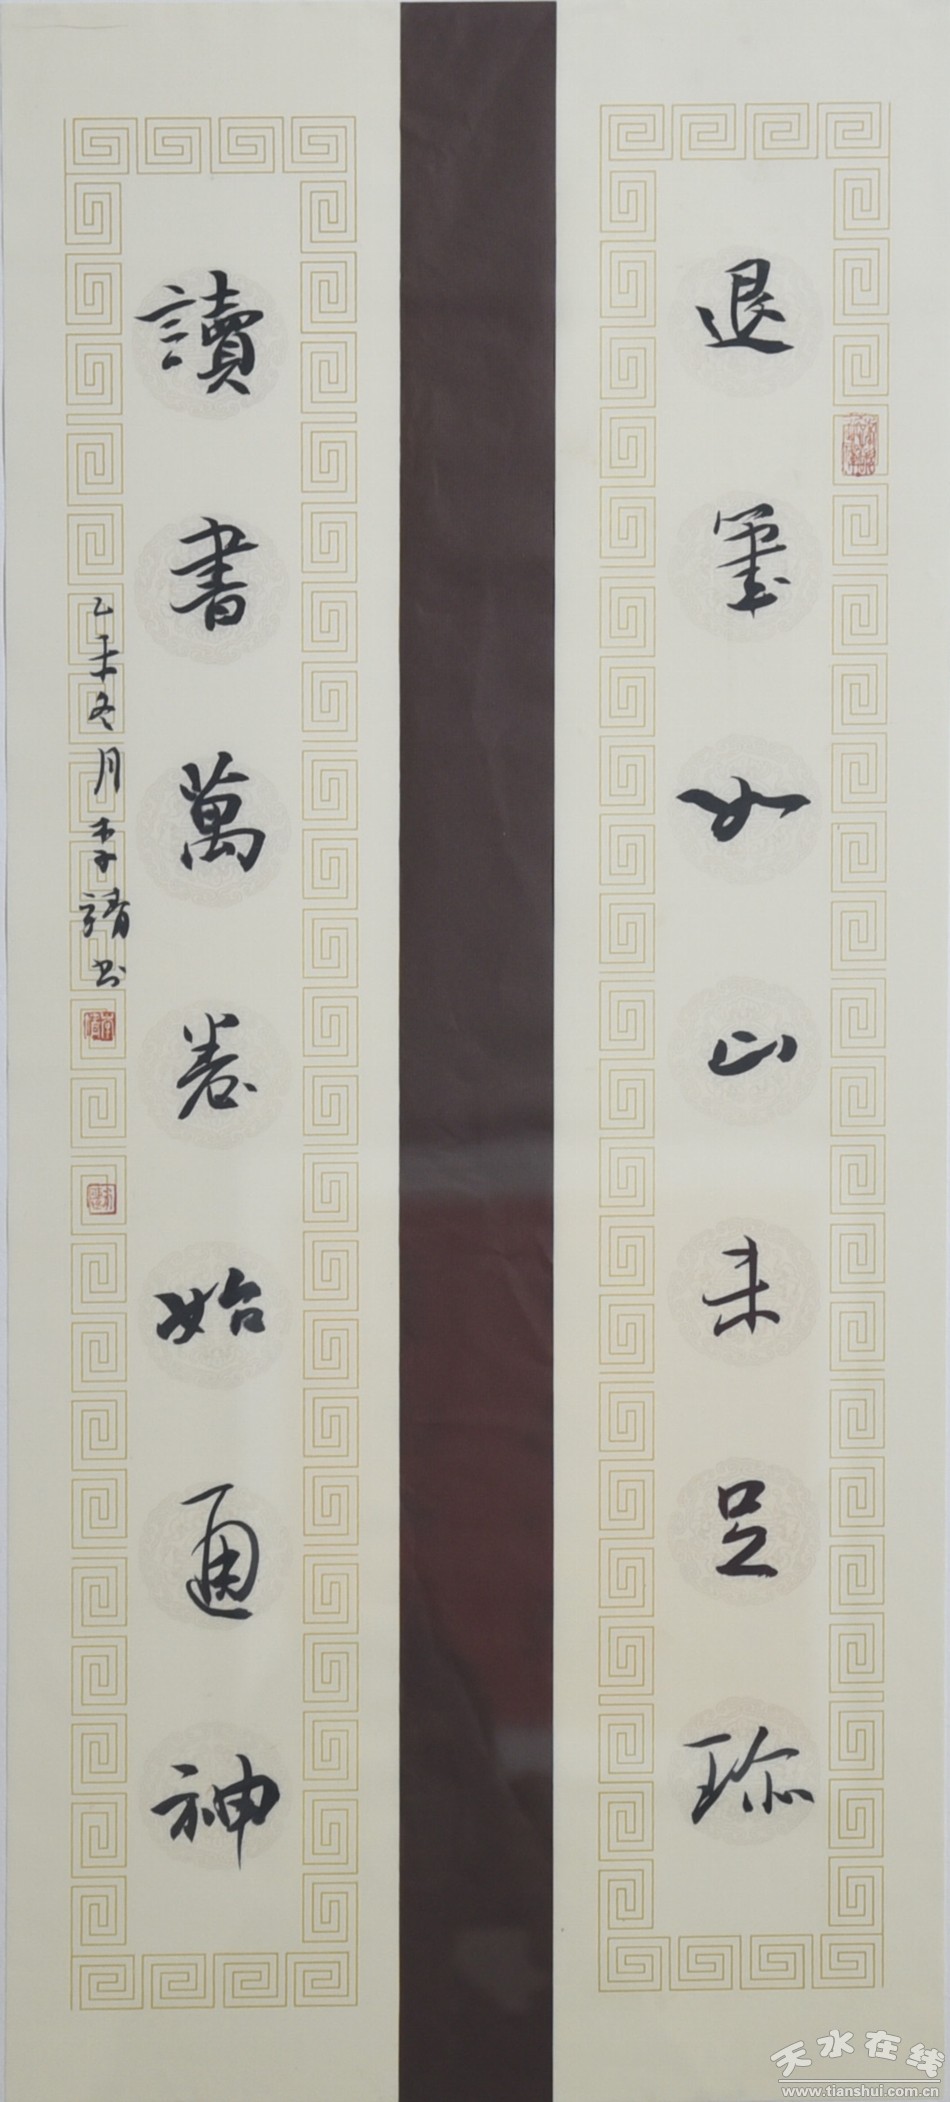 退筆如山未足珎
讀書萬卷始通神
乙未冬月李靖书
天水在线
www.tianshui.com.cn